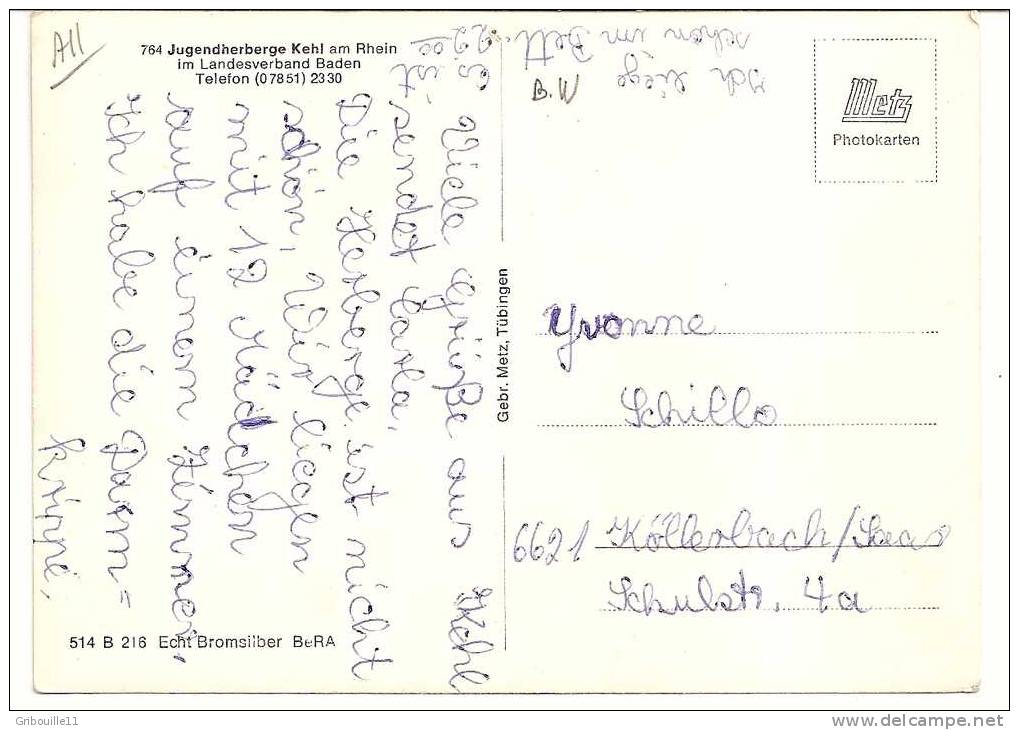 All
764 Jugendherberge Kehl am Rhein
im Landesverband Baden
Telefon (07851) 2330
Viele Grüße aus Kehl
sendet Carla,
Die Herberge ist nicht
schön, Wir liegen
mit 12 Mädchen
auf einem Zimmer,
Ich habe die Darm=
krippe,
es ist 22 00
Ich liege
schon im Bett.
B.W
Metz
Photokarten
Gebr. Metz, Tübingen
Yvonne
Schillo
6621 Köllerbach/Saar
Schulstr, 4a
514 B 216 Echt Bromsilber BeRA
Gribouille11
http://www.delcampe.net